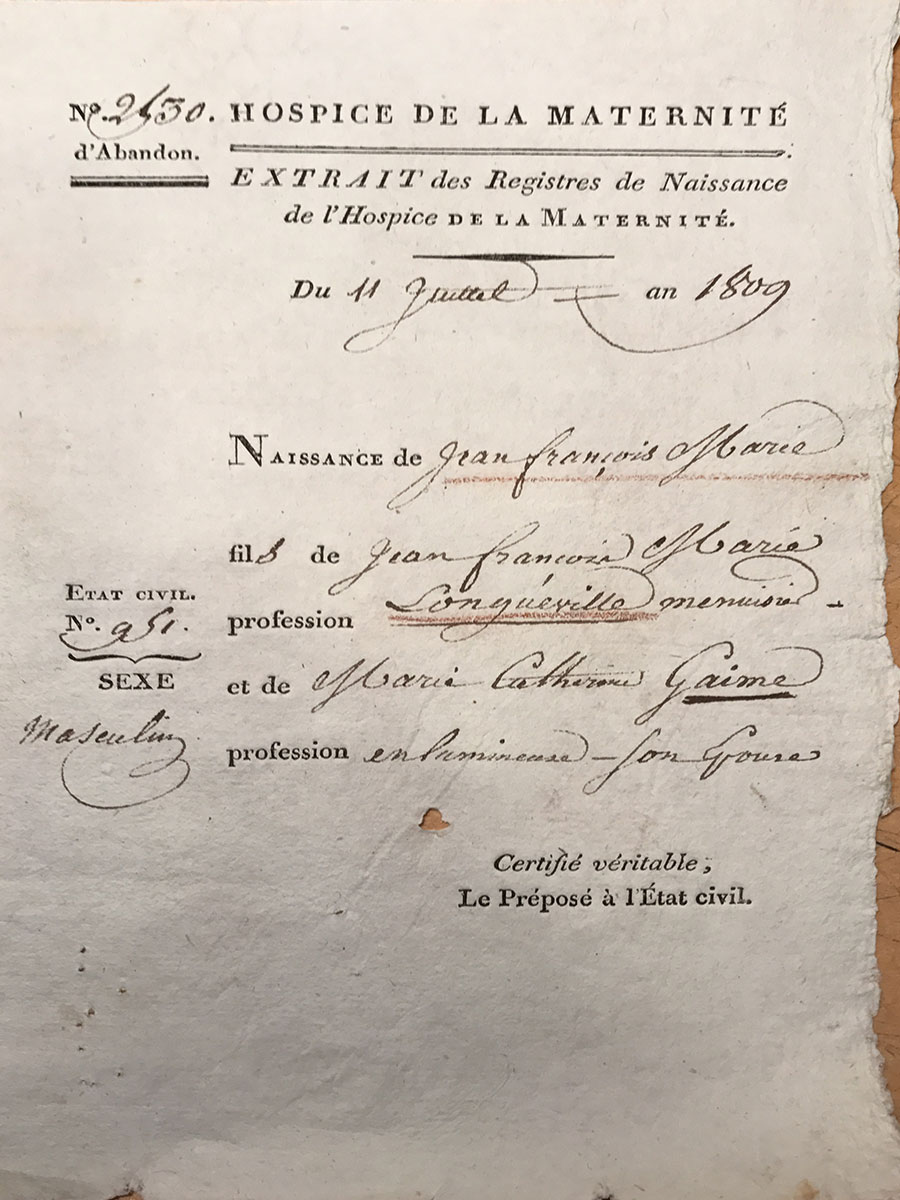 Nº. 2530. HOSPICE DE LA MATERNITÉ
d'Abandon.
EXTRAIT des Registres de Naissance
de l'Hospice DE LA MATERNITÉ.
Du 11 Juillet an 1809
NAISSANCE de Jean françois Marie
fils de Jean françois Marie
profession Longuéville menuisier
et de Marie Catherine Gaime
profession enlumineuse – son Epouse
ETAT CIVIL.
Nº. 951.
SEXE
Masculin
Certifié véritable,
Le Préposé à l'État civil.